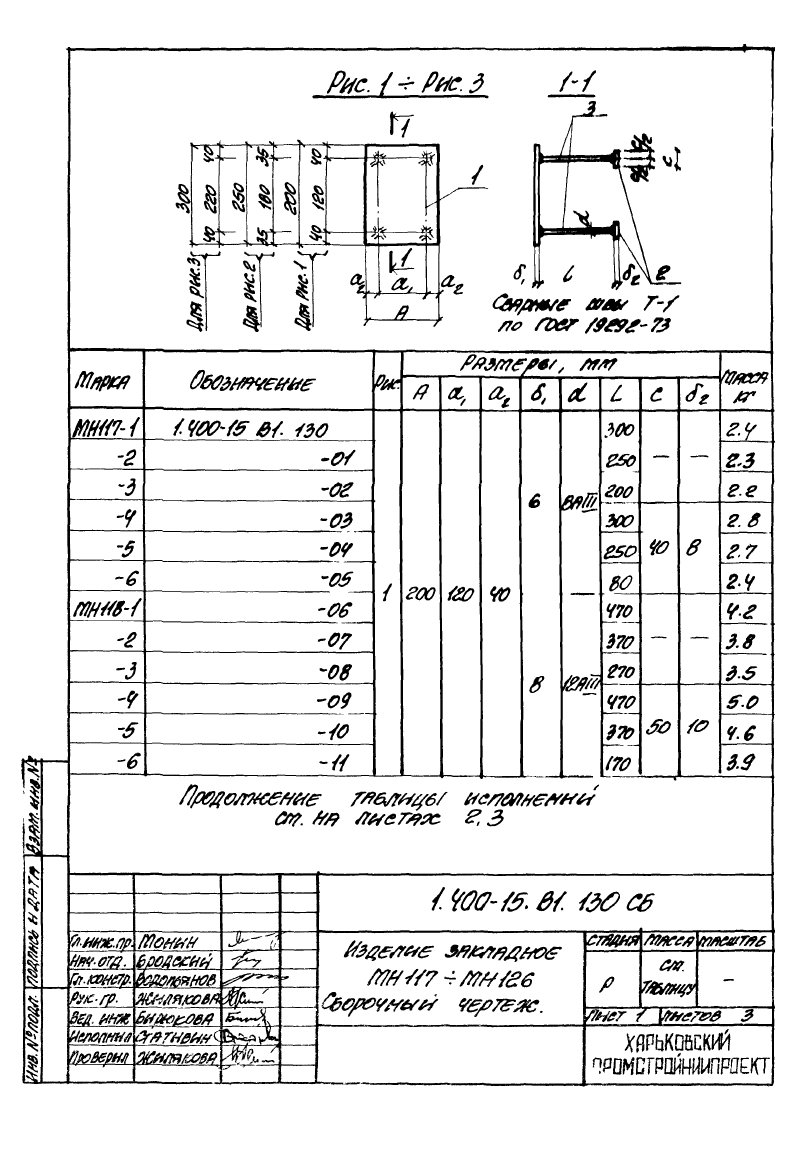 Рис. 1 ÷ Рис. 3
1-1
1
1
1
3
2
300
40 220 40
250
35 180 35
200
40 120 40
Для рис. 3
Для рис. 2
Для рис. 1
a₂ a₁ a₂
A
δ₁ L δ₂
d
c/2
c/2
c
Сварные швы Т-1
по ГОСТ 19292-73
Марка Обозначение Рис. Размеры, мм Масса кг
A a₁ a₂ δ₁ d L c δ₂
МН117-1 1.400-15 В1. 130 1 200 120 40 6 8АIII 300 — — 2.4
-2 -01 250 2.3
-3 -02 200 2.2
-4 -03 300 40 8 2.8
-5 -04 250 2.7
-6 -05 — 80 2.4
МН118-1 -06 8 12АIII 470 — — 4.2
-2 -07 370 3.8
-3 -08 270 3.5
-4 -09 470 50 10 5.0
-5 -10 370 4.6
-6 -11 170 3.9
Продолжение таблицы исполнений
см. на листах 2, 3
Взам. инв. №
Подпись и дата
Инв. № подл.
1.400-15. В1. 130 СБ
Гл. инж. пр. Монин
Нач. отд. Бродский
Гл. констр. Водопьянов
Рук. гр. Жилякова
Вед. инж Бирюкова
Исполнил Статывин
Проверил Жилякова
Изделие закладное
МН 117 ÷ МН 126
Сборочный чертеж.
Стадия Масса Масштаб
Р см. таблицу —
Лист 1 Листов 3
Харьковский
ПромстройНИИпроект